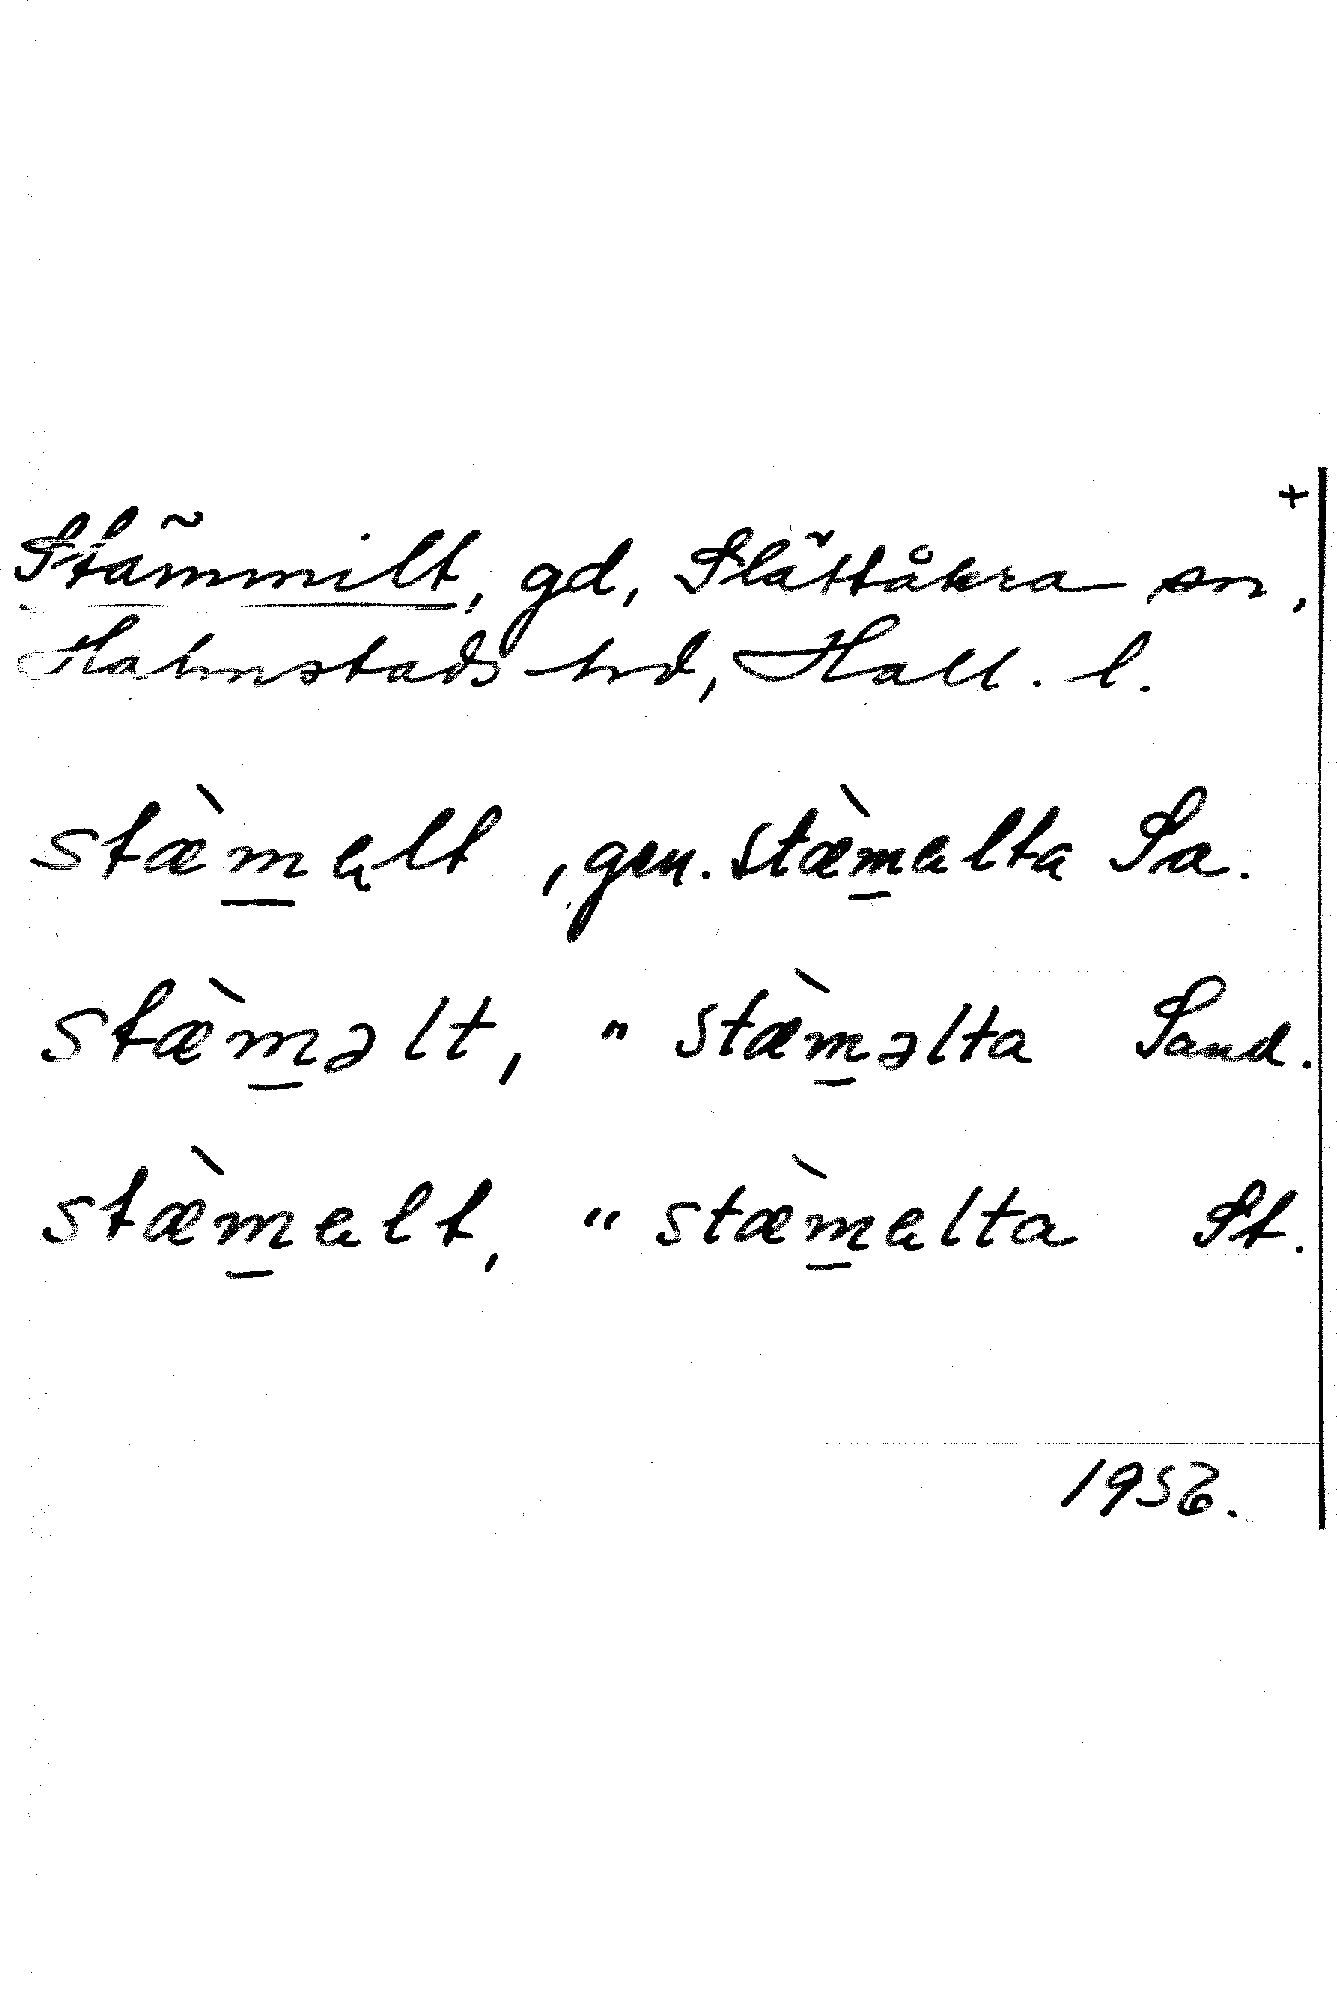 +
Stämmilt, gd, Slättåkra sn,
Halmstads hd, Hall. l.
stæ̀m̲ɐlt, gen. stæ̀m̲ɐlta Sa.
stæ̀m̲əlt, " stæ̀m̲əlta Sand.
stæ̀m̲ɐlt, " stæ̀m̲ɐlta St.